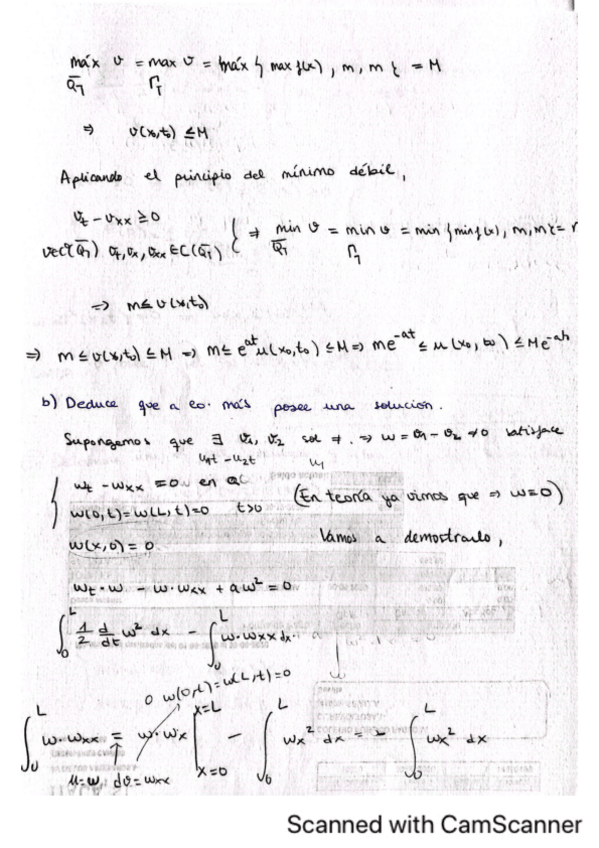 máx v = max v = máx { max f(x), m, m } = M
Q̅_T Γ_T
⇒ v(x₀,t₀) ≤ M
Aplicando el principio del mínimo débil,
v_t - v_xx ≥ 0
v ∈ C(Q̅_T) v_t, v_x, v_xx ∈ C(Q_T) } ⇒ min v = min v = min { min f(x), m, m } =
Q̅_T Γ_T
⇒ m ≤ v(x₀,t₀)
⇒ m ≤ v(x₀,t₀) ≤ M ⇒ m ≤ e^{at} u(x₀,t₀) ≤ M ⇒ me^{-at} ≤ u(x₀,t₀) ≤ Me^{-at}
b) Deduce que a lo más posee una solución.
Supongamos que ∃ v₁, v₂ sol ≠. ⇒ w = v₁ - v₂ ≠ 0 satisface
u₁t - u₂t u₁
w_t - w_xx = 0 en
w(0,t) = w(L,t) = 0 t>0 (En teoría ya vimos que ⇒ w=0)
w(x,0) = 0 Vamos a demostrarlo,
w_t · w - w · w_xx + a w² = 0
∫₀^L 1/2 d/dt w² dx - ∫₀^L w · w_xx dx
0 w(0,t) = w(L,t) = 0
∫₀^L w · w_xx = w · w_x ]_{x=0}^{x=L} - ∫₀^L w_x² dx = - ∫₀^L w_x² dx
u = w, dv = w_xx
Scanned with CamScanner